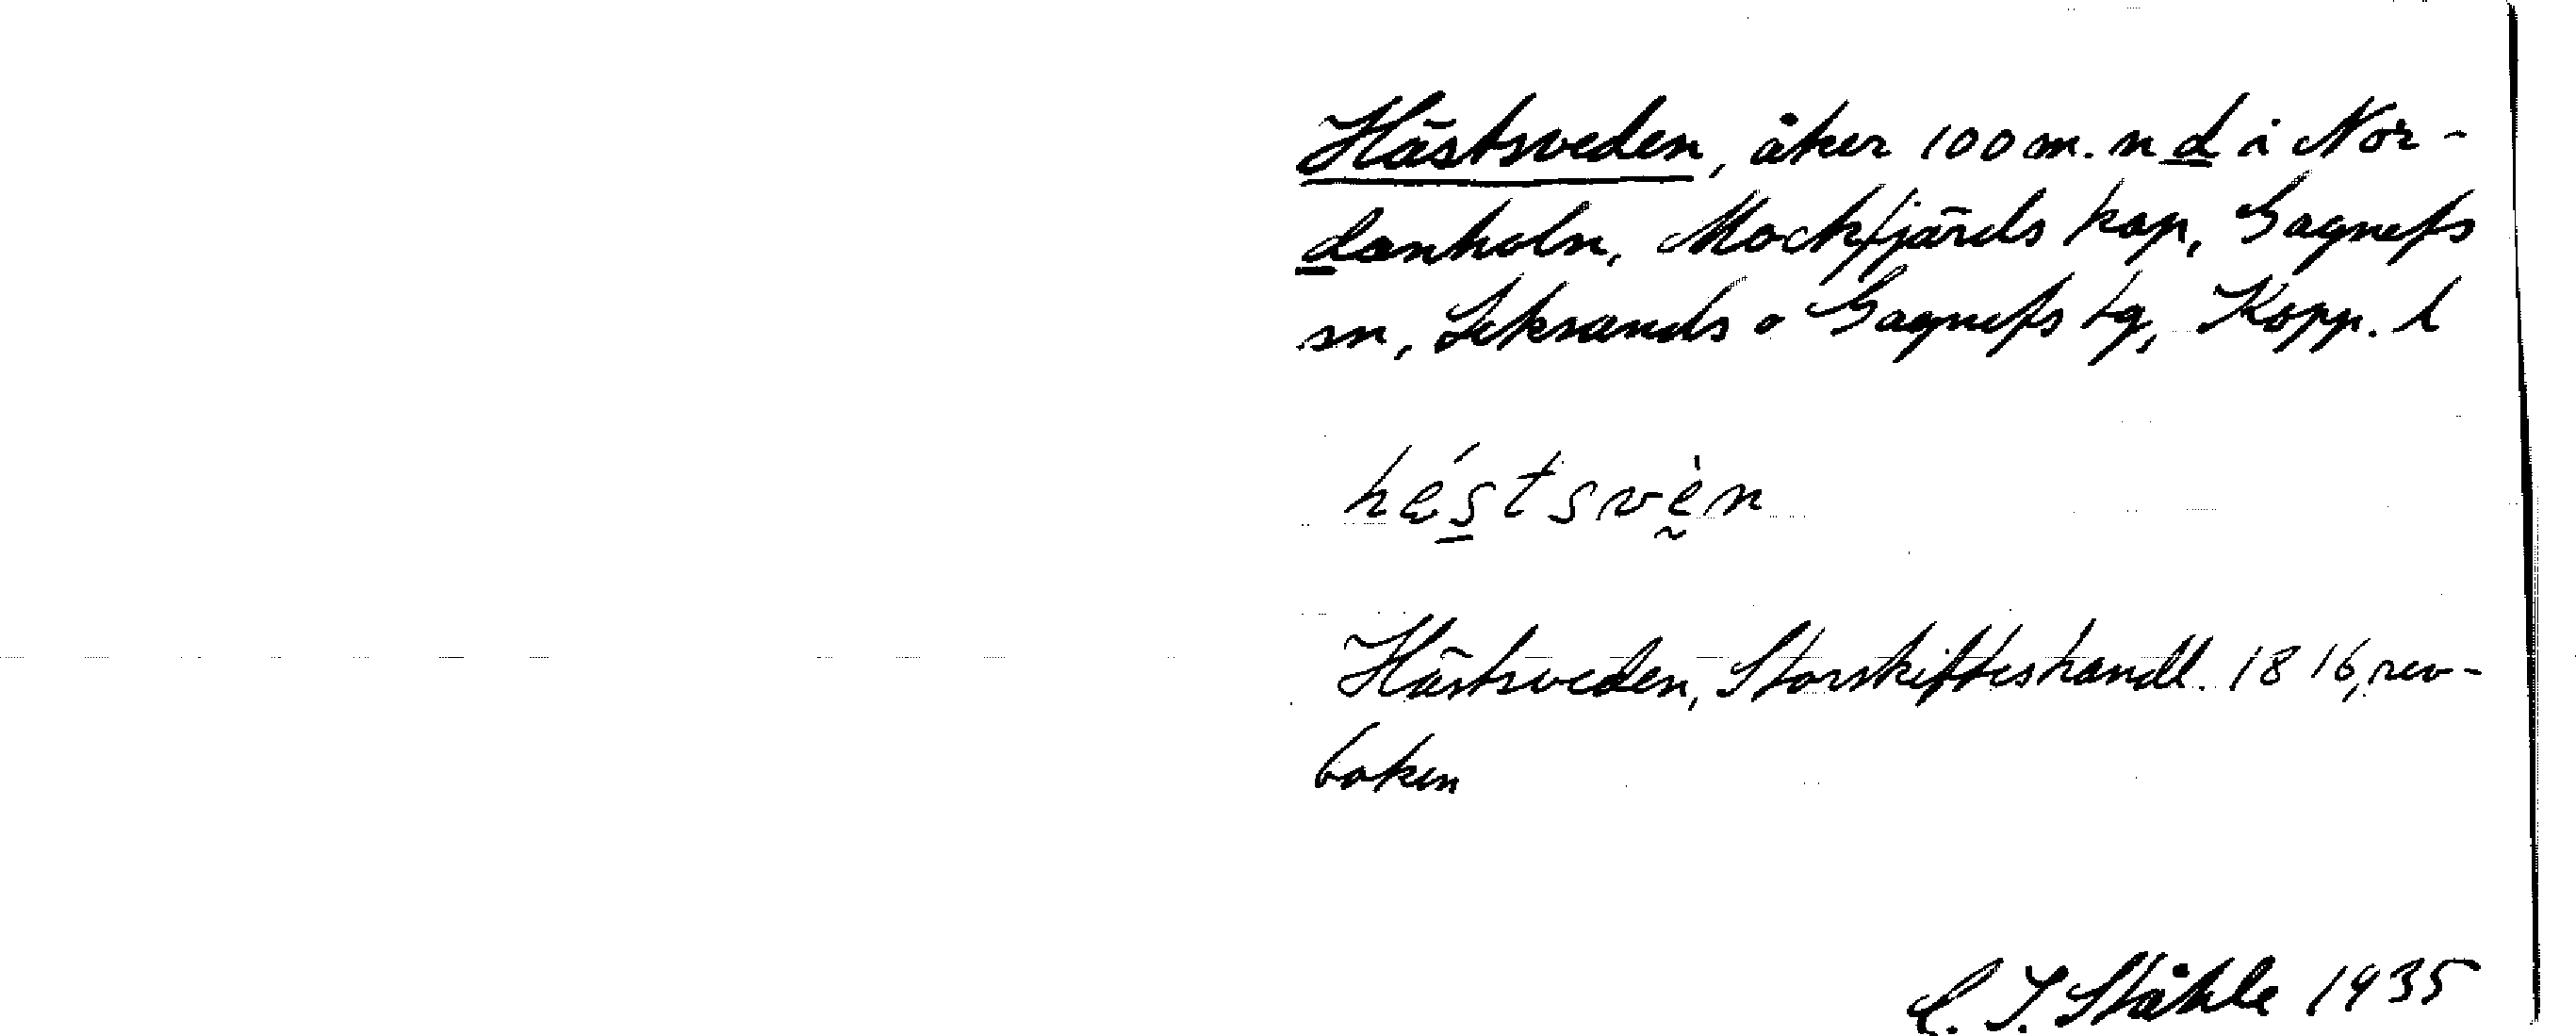 Hästsveden, åker 100 m. n d i Nor-
danholn, Mockfjärds kap, Gagnefs
sn, Leksands o Gagnefs tg, Kopp. l
héstsvèn
Hästsveden, Storskifteshandl. 1816, rev-
boken
C. I. Ståhle 1935